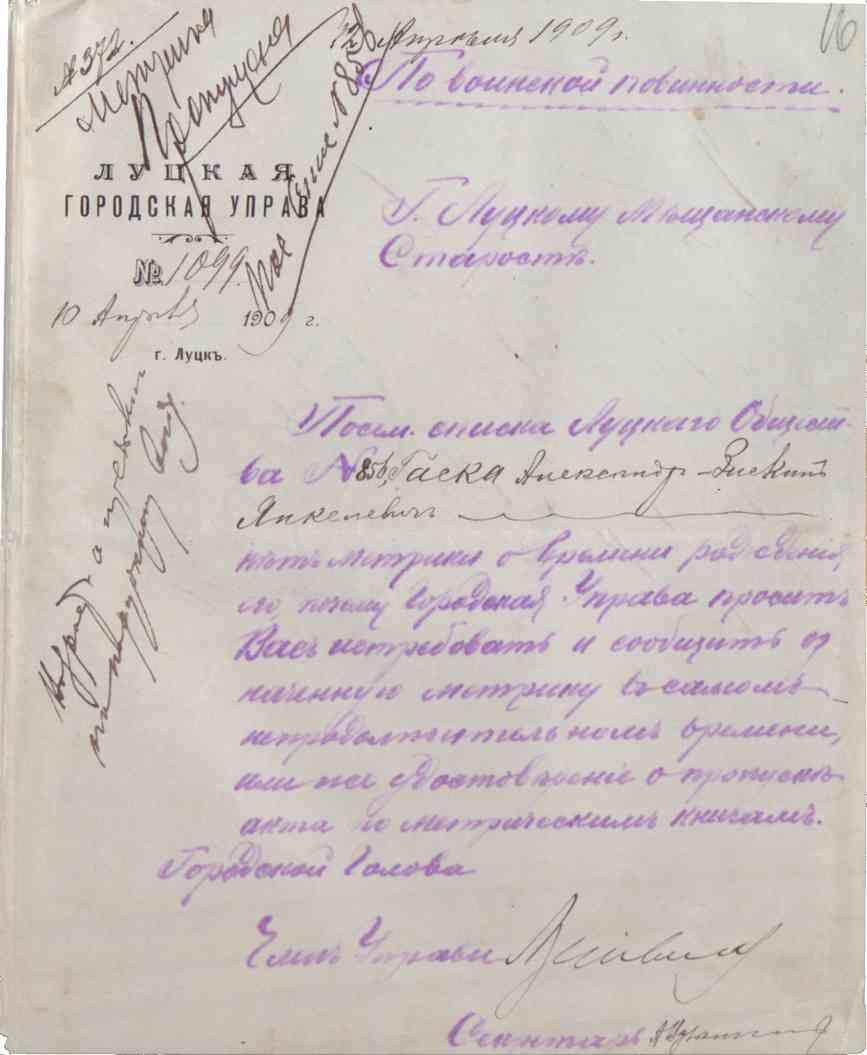 16
12 Апреля 1909 г.
№ 372.
Метрика
Пропущена
По воинской повинности.
ЛУЦКАЯ
ГОРОДСКАЯ УПРАВА
№ 1099
10 Апреля 1909 г.
г. Луцкъ.
Г. Луцкому Мѣщанскому
Старостѣ.
Посем. списка Луцкаго Общест-
ва № 856, Гаска Александр-Зискинъ
Янкелевичъ
нѣтъ метрики о времени рождения
его почему Городская Управа проситъ
Васъ истребовать и сообщить оз
наченную метрику въ самомъ
непродолжительномъ времени,
или же удостовѣреніе о пропускѣ
акта по метрическимъ книгамъ.
Городской Голова
Членъ Управы
Секретарь